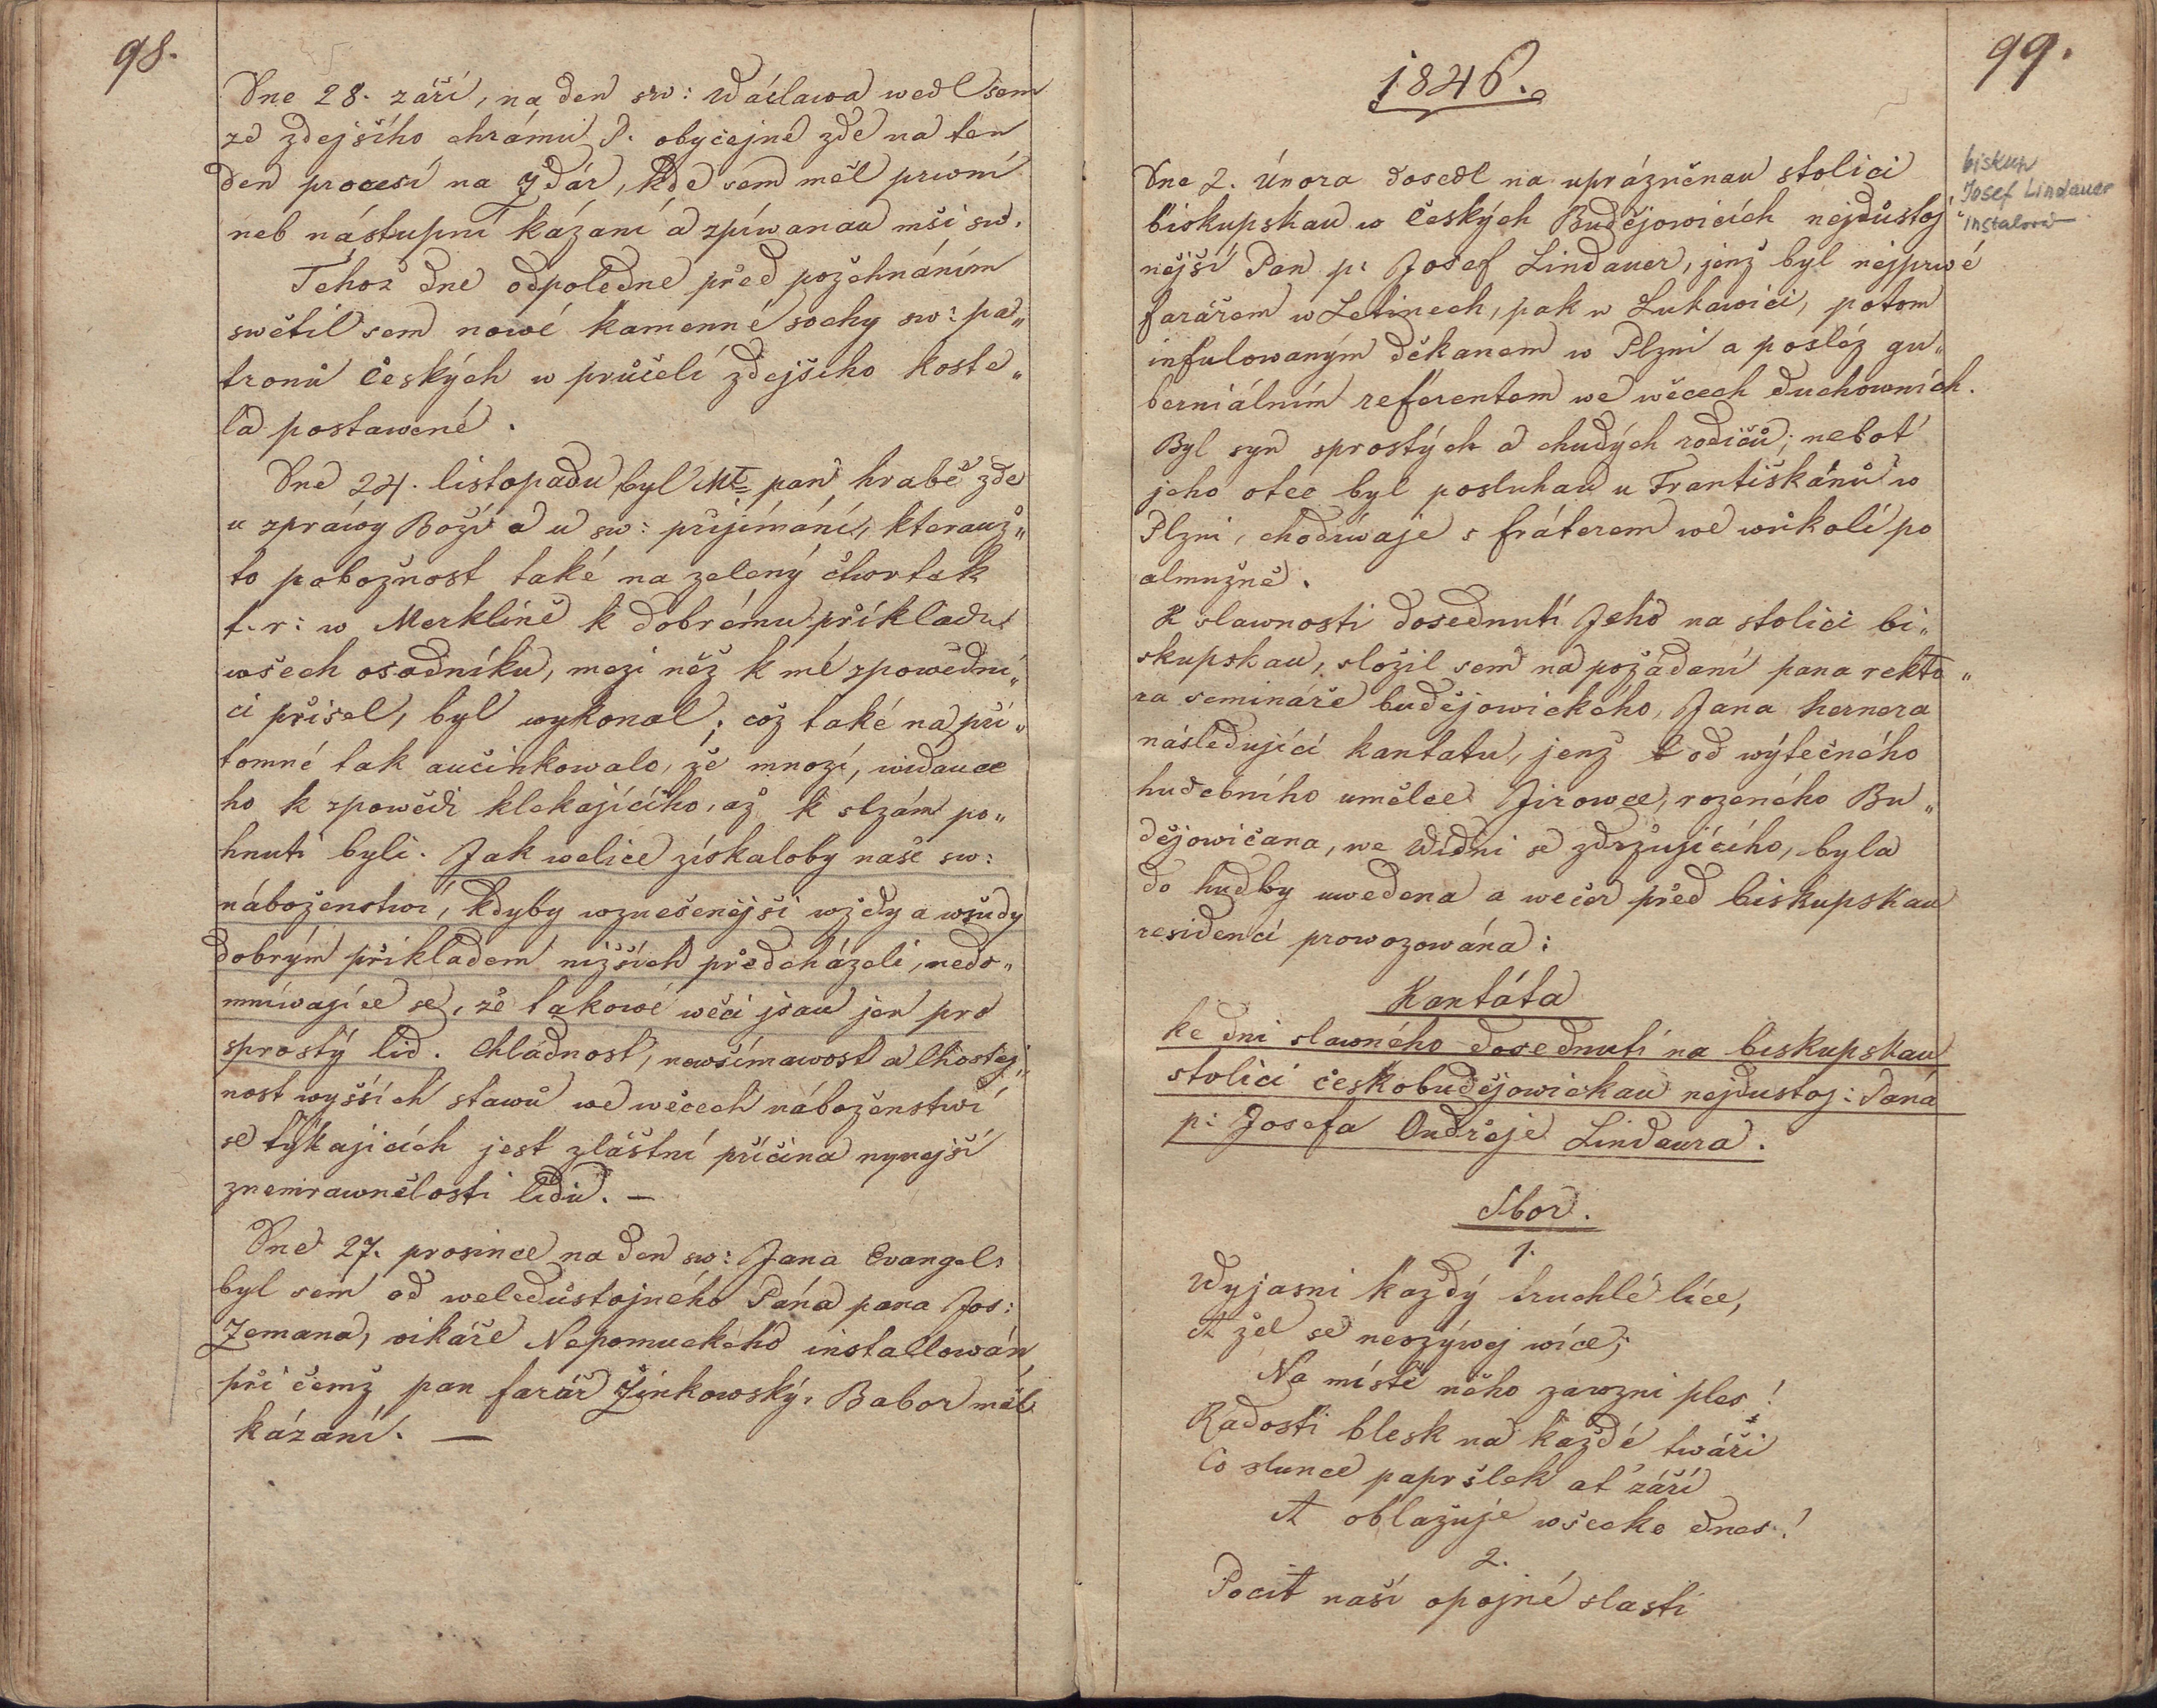 98.
Dne 28. září, na den sw: Wáclawa wedl sem
ze zdejšího chrámu P. obyčejné zde na ten
den procesí na Žďár, kde sem měl prwní
neb nástupní kázaní a zpíwanau mši sw.
Téhož dne odpoledne před požehnáním
swětil sem nowé kamenné sochy sw: pa„
tronů Českých w průčelí zdejšého koste„
la postawené.
Dne 24. listopadu byl Mt pan hrabě zde
u zpráwy Boží a u sw: přijímání, kterauž„
to pobožnost také na zelený čtwrtek
t. r: w Merklíně k dobrému příkladu
wšech osadníku, mezi něž k mé zpowědni„
ci přišel, byl wykonal; což také na pří„
tomné tak aučinkowalo, že mnozí, widauce
ho k zpowědi klekajícího, až k slzám po„
hnuti byli. Jak welice získaloby naše sw:
náboženstwí, kdyby wznešenější wždy a wšudy
dobrým příkladem nižších předcházeli, nedo„
mníwajíce se, že takowé wěci jsau jen pro
sprostý lid. Chladnost, newšímawost a lhostej„
nost wyšších stawů we wěcech náboženstwí
se týkajících jest zláštní příčina nynější
znemrawnělosti lidu. —
Dne 27. prosince na den sw: Jana Evangel:
byl sem od weledůstojného Pána pana Jos:
Zemana, vikáře Nepomuckého installowán
při čemž pan farář Žinkowský, Babor měl
kázaní. —
99.
1846.
biskup
Josef Lindauer
instalová
Dne 2. Února dosedl na uprázněnau stolici
biskupskau w Českých Budějowicích nejdůstoj„
nější Pan p: Josef Lindauer, jenž byl nejprwé
farářem w Letinech, pak w Lukawici, potom
infulowaným děkanem w Plzni a posléz gu„
berniálním referentem we wěcech duchowních.
Byl syn sprostých a chudých rodičů; neboť
jeho otec byl posluhau u Františkánů w
Plzni, chodíwaje s fráterem we wůkolí po
almužně.
K slawnosti dosednutí Jeho na stolici bi„
skupskau, složil sem na požádaní pana rekto„
ra semináře budějowického, Jana Hernera
následující kantatu, jenž od wýtečného
hudebního umělce Jirowce, rozeného Bu„
dějowičana, we Wídni se zdržujícího, byla
do hudby uwedena a wečer před biskupskau
residencí prowozowána:
Kantáta
ke dni slawného dosednutí na biskupskau
stolici českobudějowickau nejdustoj: Pana
p: Josefa Ondřeje Lindaura.
Sbor.
1.
Wyjasni každý truchlé líce,
A žel se neozýwej wíce;
Na místě něho zawzni ples!
Radosti blesk na každé twáři
Co slunce papršlek ať září
A oblažuje wšecko dnes!
2.
Pocit naší opojné slasti